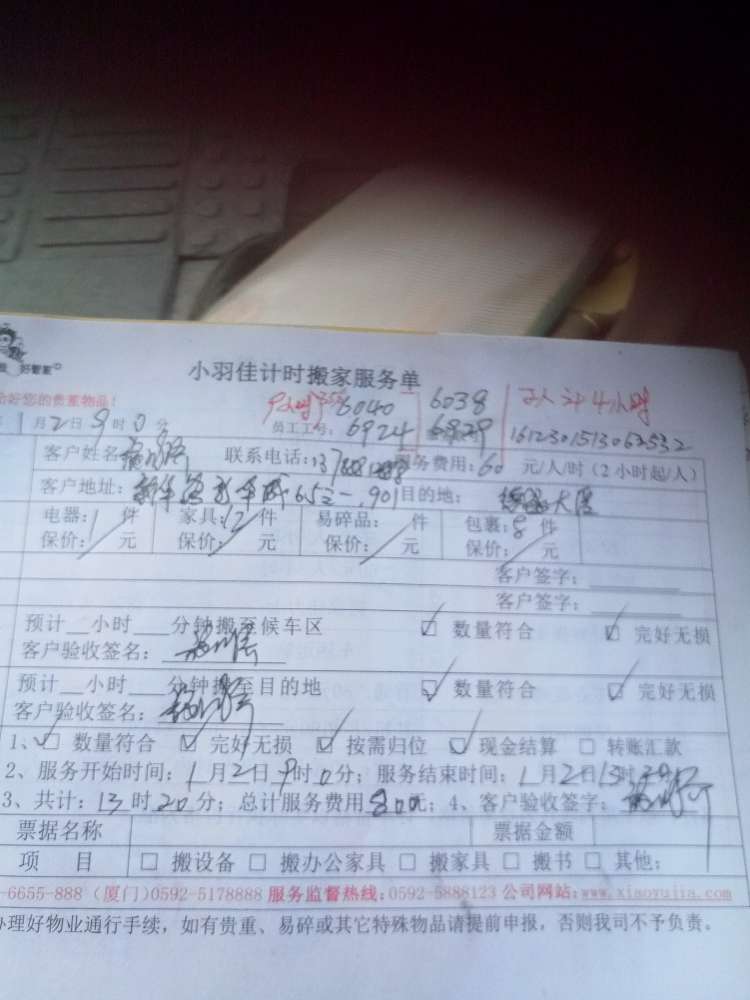 好管家
小羽佳计时搬家服务单
您的贵重物品！
6040 6038 4小时
1月2日9时0分 员工工号：6924 6829 1612301513063532
客户姓名 联系电话： 服务费用：60 元/人/时（2小时起/人）
客户地址： 901 目的地： 大厦
电器：1 件 家具：12件 易碎品： 件 包裹：8件
保价：/ 元 保价：/ 元 保价：/ 元 保价：/ 元
客户签字：
客户签字：
预计__小时___分钟搬至候车区 ☑ 数量符合 ☑ 完好无损
客户验收签名：
预计__小时___分钟搬至目的地 ☑ 数量符合 ☑ 完好无损
客户验收签名：
1、☑ 数量符合 ☑ 完好无损 ☑ 按需归位 ☑ 现金结算 □ 转账汇款
2、服务开始时间：1月2日9时0分；服务结束时间：1月2日13时
3、共计：13时20分；总计服务费用800元；4、客户验收签字：
票据名称 票据金额
项 目 □ 搬设备 □ 搬办公家具 □ 搬家具 □ 搬书 □ 其他：
-6655-888（厦门）0592-5178888 服务监督热线：0592-5888123 公司网站：www.xiaoyujia.com
办理好物业通行手续，如有贵重、易碎或其它特殊物品请提前申报，否则我司不予负责。